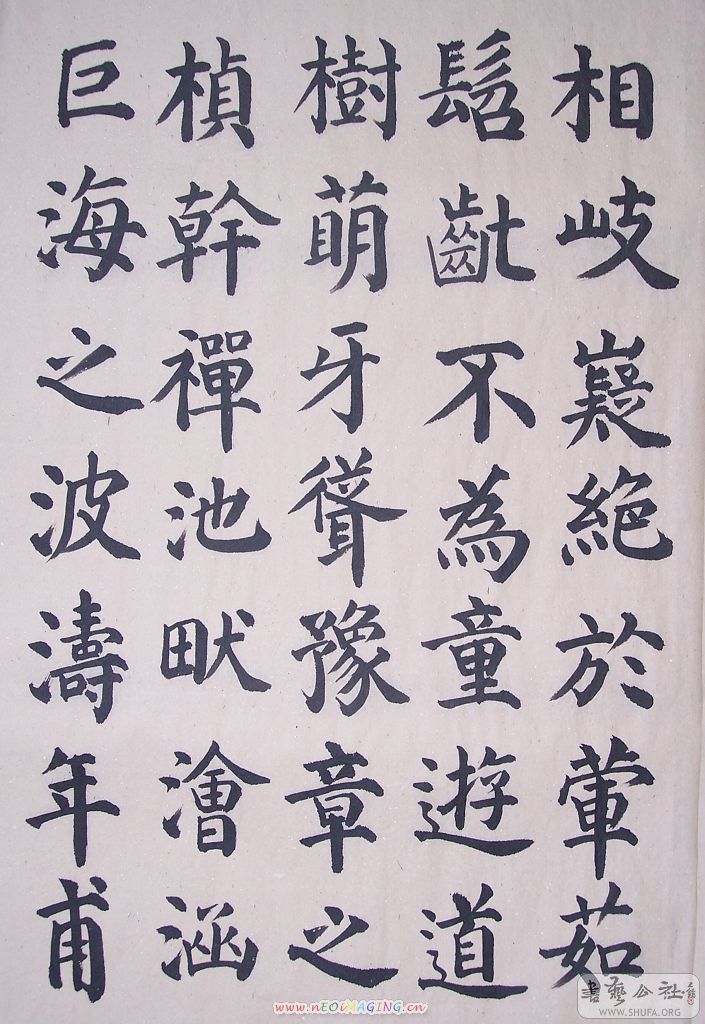 相岐嶷絕於葷茹
髫齔不為童遊道
樹萌牙聳豫章之
楨幹禪池畎澮涵
巨海之波濤年甫
書藝公社
WWW.SHUFA.ORG
www.nEOiMAGING.cn